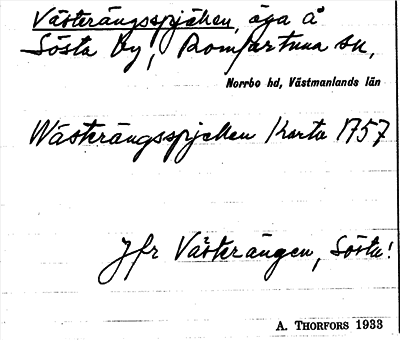 Västerängsspjällen, äga å
Sösta by, Romfartuna sn,
Norrbo hd, Västmanlands län
Wästerängsspjellen Karta 1757
Jfr Västerängen, Sösta!
A. THORFORS 1933